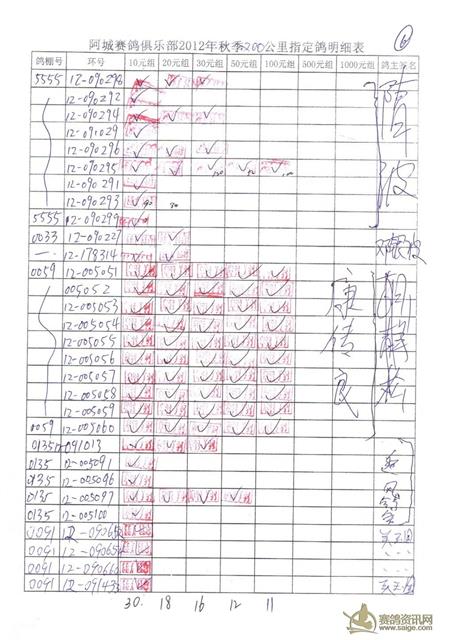 阿城赛鸽俱乐部2012年秋季200公里指定鸽明细表 ⑥
鸽棚号 环号 10元组 20元组 30元组 50元组 100元组 500元组 1000元组 鸽主签名
5555 12-090298 ✓ ✓ ✓
12-090292 ✓
12-090294 ✓ ✓ ✓
12-091029 ✓
12-090296 ✓ ✓ ✓
12-090295 ✓ ✓ ✓ ✓ ✓
12-090291 ✓
12-090293 ✓
5555 12-090299 ✓
0033 12-090227 ✓ ✓
12-178314 ✓ ✓
0059 12-005051 ✓ ✓ ✓ ✓ ✓
005052 ✓ ✓ ✓ ✓ ✓
12-005053 ✓ ✓ ✓ ✓ ✓
12-005054 ✓ ✓ ✓ ✓ ✓
12-005055 ✓ ✓ ✓ ✓ ✓
12-005056 ✓ ✓ ✓ ✓ ✓
12-005057 ✓ ✓ ✓ ✓ ✓
12-005058 ✓ ✓ ✓ ✓ ✓
12-005059 ✓ ✓ ✓ ✓ ✓
0059 12-005060 ✓ ✓ ✓ ✓ ✓
康传良
0135 12-091013 ✓ ✓ ✓
0135 12-005091 ✓
0135 12-005096 ✓
0135 12-005097 ✓ ✓ ✓ ✓
0135 12-005100 ✓
0091
0091
0091
0091
30. 18 16 12 11
赛鸽资讯网
www.saige.com